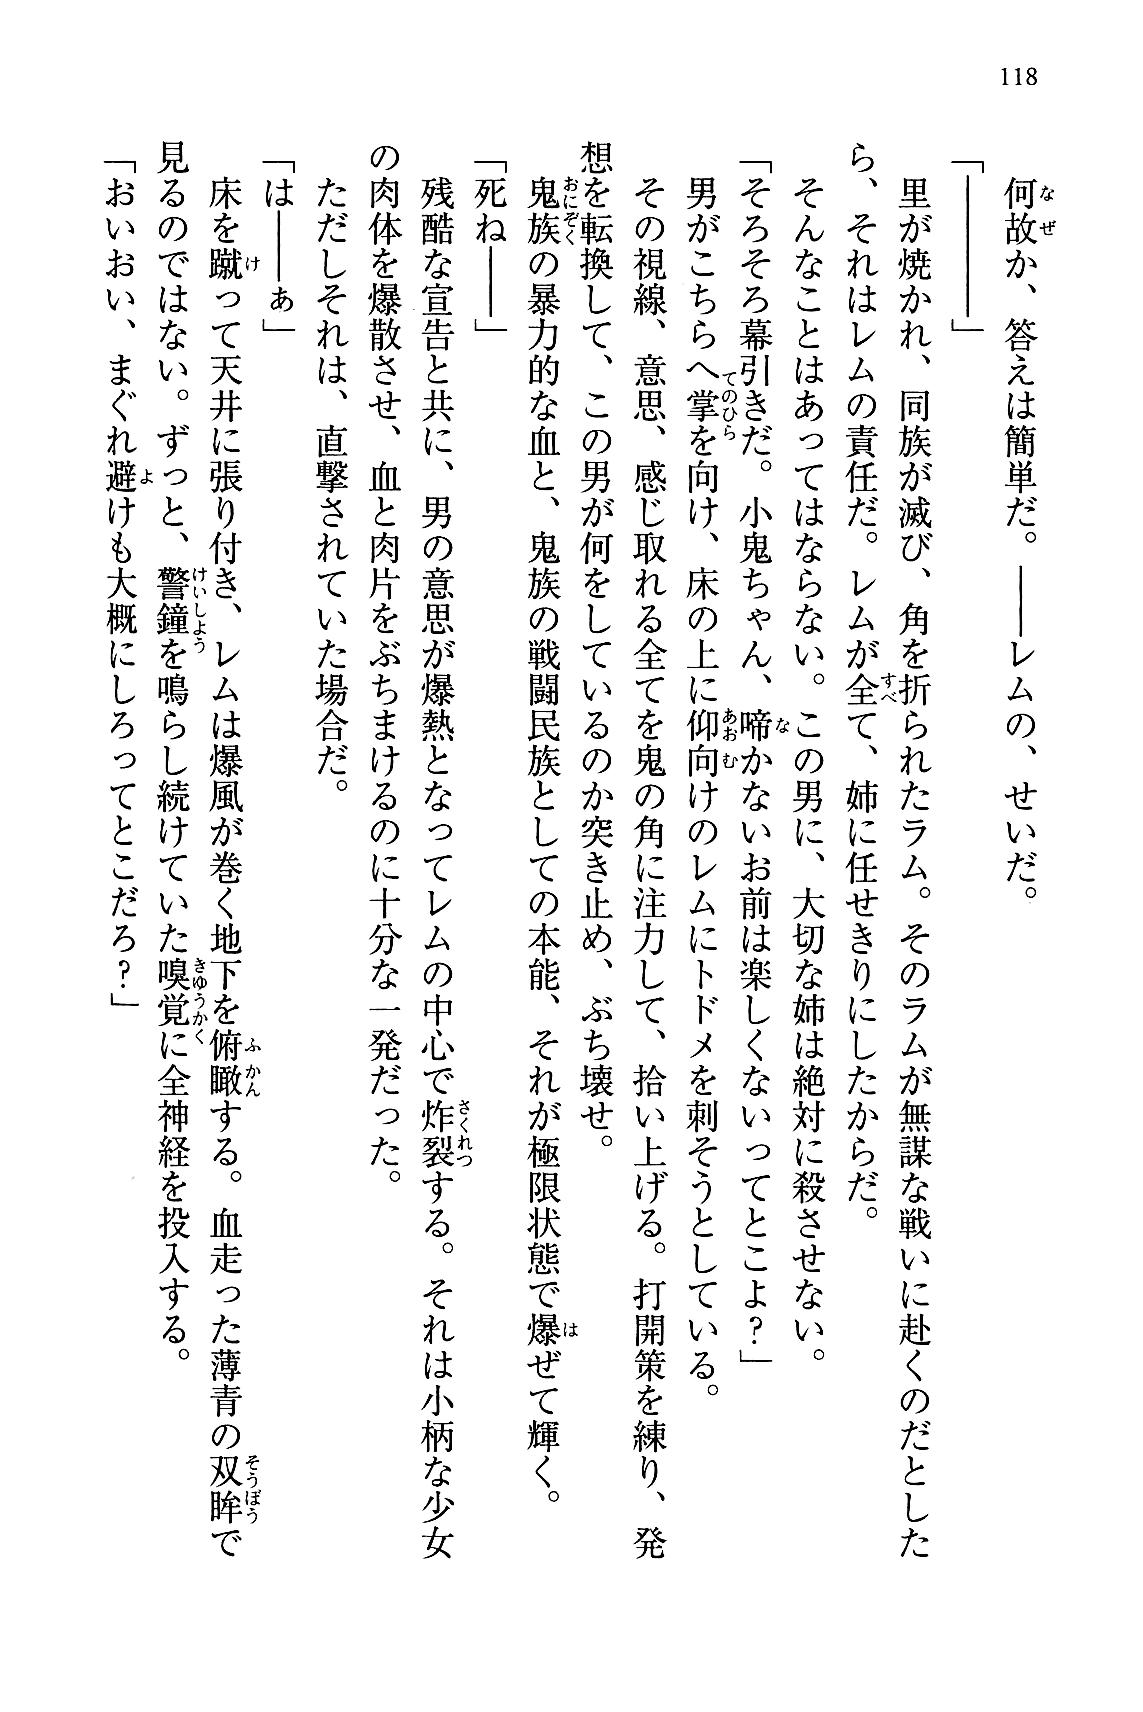 118
何故か、答えは簡単だ。――レムの、せいだ。
「――――」
里が焼かれ、同族が滅び、角を折られたラム。そのラムが無謀な戦いに赴くのだとした
ら、それはレムの責任だ。レムが全て、姉に任せきりにしたからだ。
そんなことはあってはならない。この男に、大切な姉は絶対に殺させない。
「そろそろ幕引きだ。小鬼ちゃん、啼かないお前は楽しくないってとこよ？」
男がこちらへ掌を向け、床の上に仰向けのレムにトドメを刺そうとしている。
その視線、意思、感じ取れる全てを鬼の角に注力して、拾い上げる。打開策を練り、発
想を転換して、この男が何をしているのか突き止め、ぶち壊せ。
鬼族の暴力的な血と、鬼族の戦闘民族としての本能、それが極限状態で爆ぜて輝く。
「死ね――」
残酷な宣告と共に、男の意思が爆熱となってレムの中心で炸裂する。それは小柄な少女
の肉体を爆散させ、血と肉片をぶちまけるのに十分な一発だった。
ただしそれは、直撃されていた場合だ。
「は――ぁ」
床を蹴って天井に張り付き、レムは爆風が巻く地下を俯瞰する。血走った薄青の双眸で
見るのではない。ずっと、警鐘を鳴らし続けていた嗅覚に全神経を投入する。
「おいおい、まぐれ避けも大概にしろってとこだろ？」